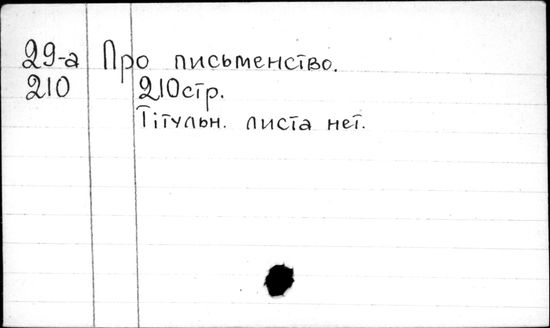 29-а Про письменство.
210 210стр.
Тітульн. листа нет.